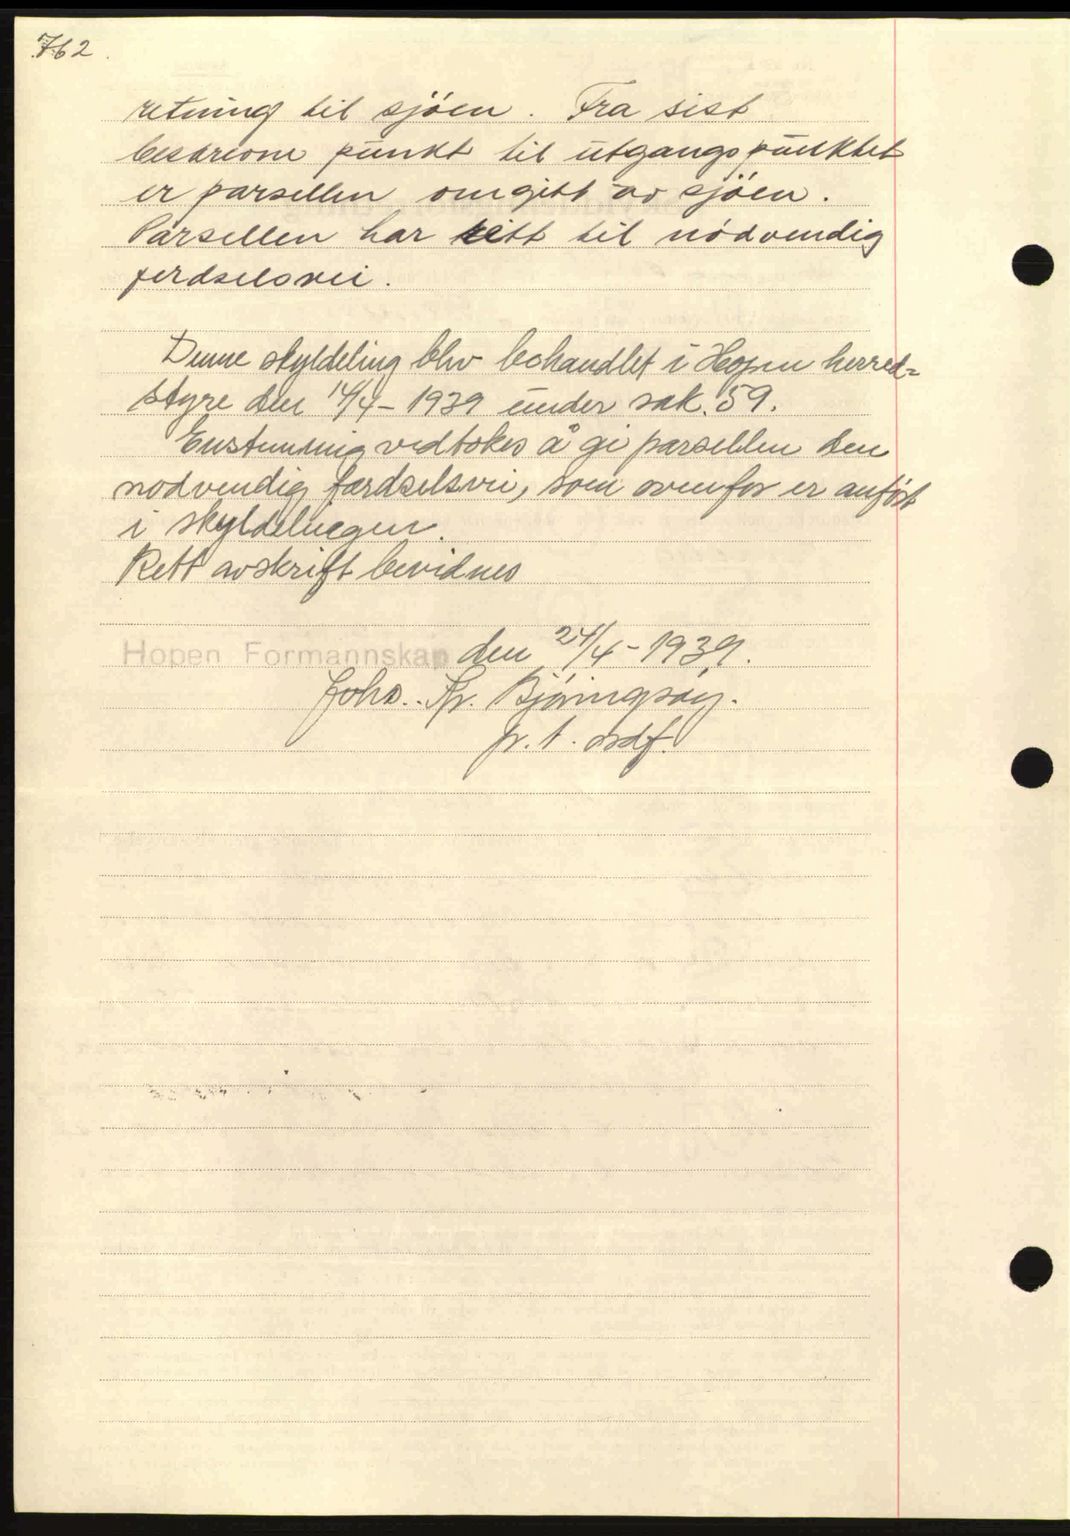 762.
retning til sjöen. Fra sist
beskrevne punkt til utgangspunktet
er parsellen omgitt av sjöen.
Parsellen har rett til nödvendig
ferdselsvei.
Denne skyldeling blev behandlet i Hopen herred=
styre den 14/4-1939 under sak. 59.
Enstemmig vedtokes å gi parsellen den
nodvendig færdselsvei, som ovenfor er anført
i skyldelingen.
Rett avskrift bevidnes
Hopen Formannskap den 24/4-1939.
Johs. Kr. Björingsöy.
p.t. ordf.